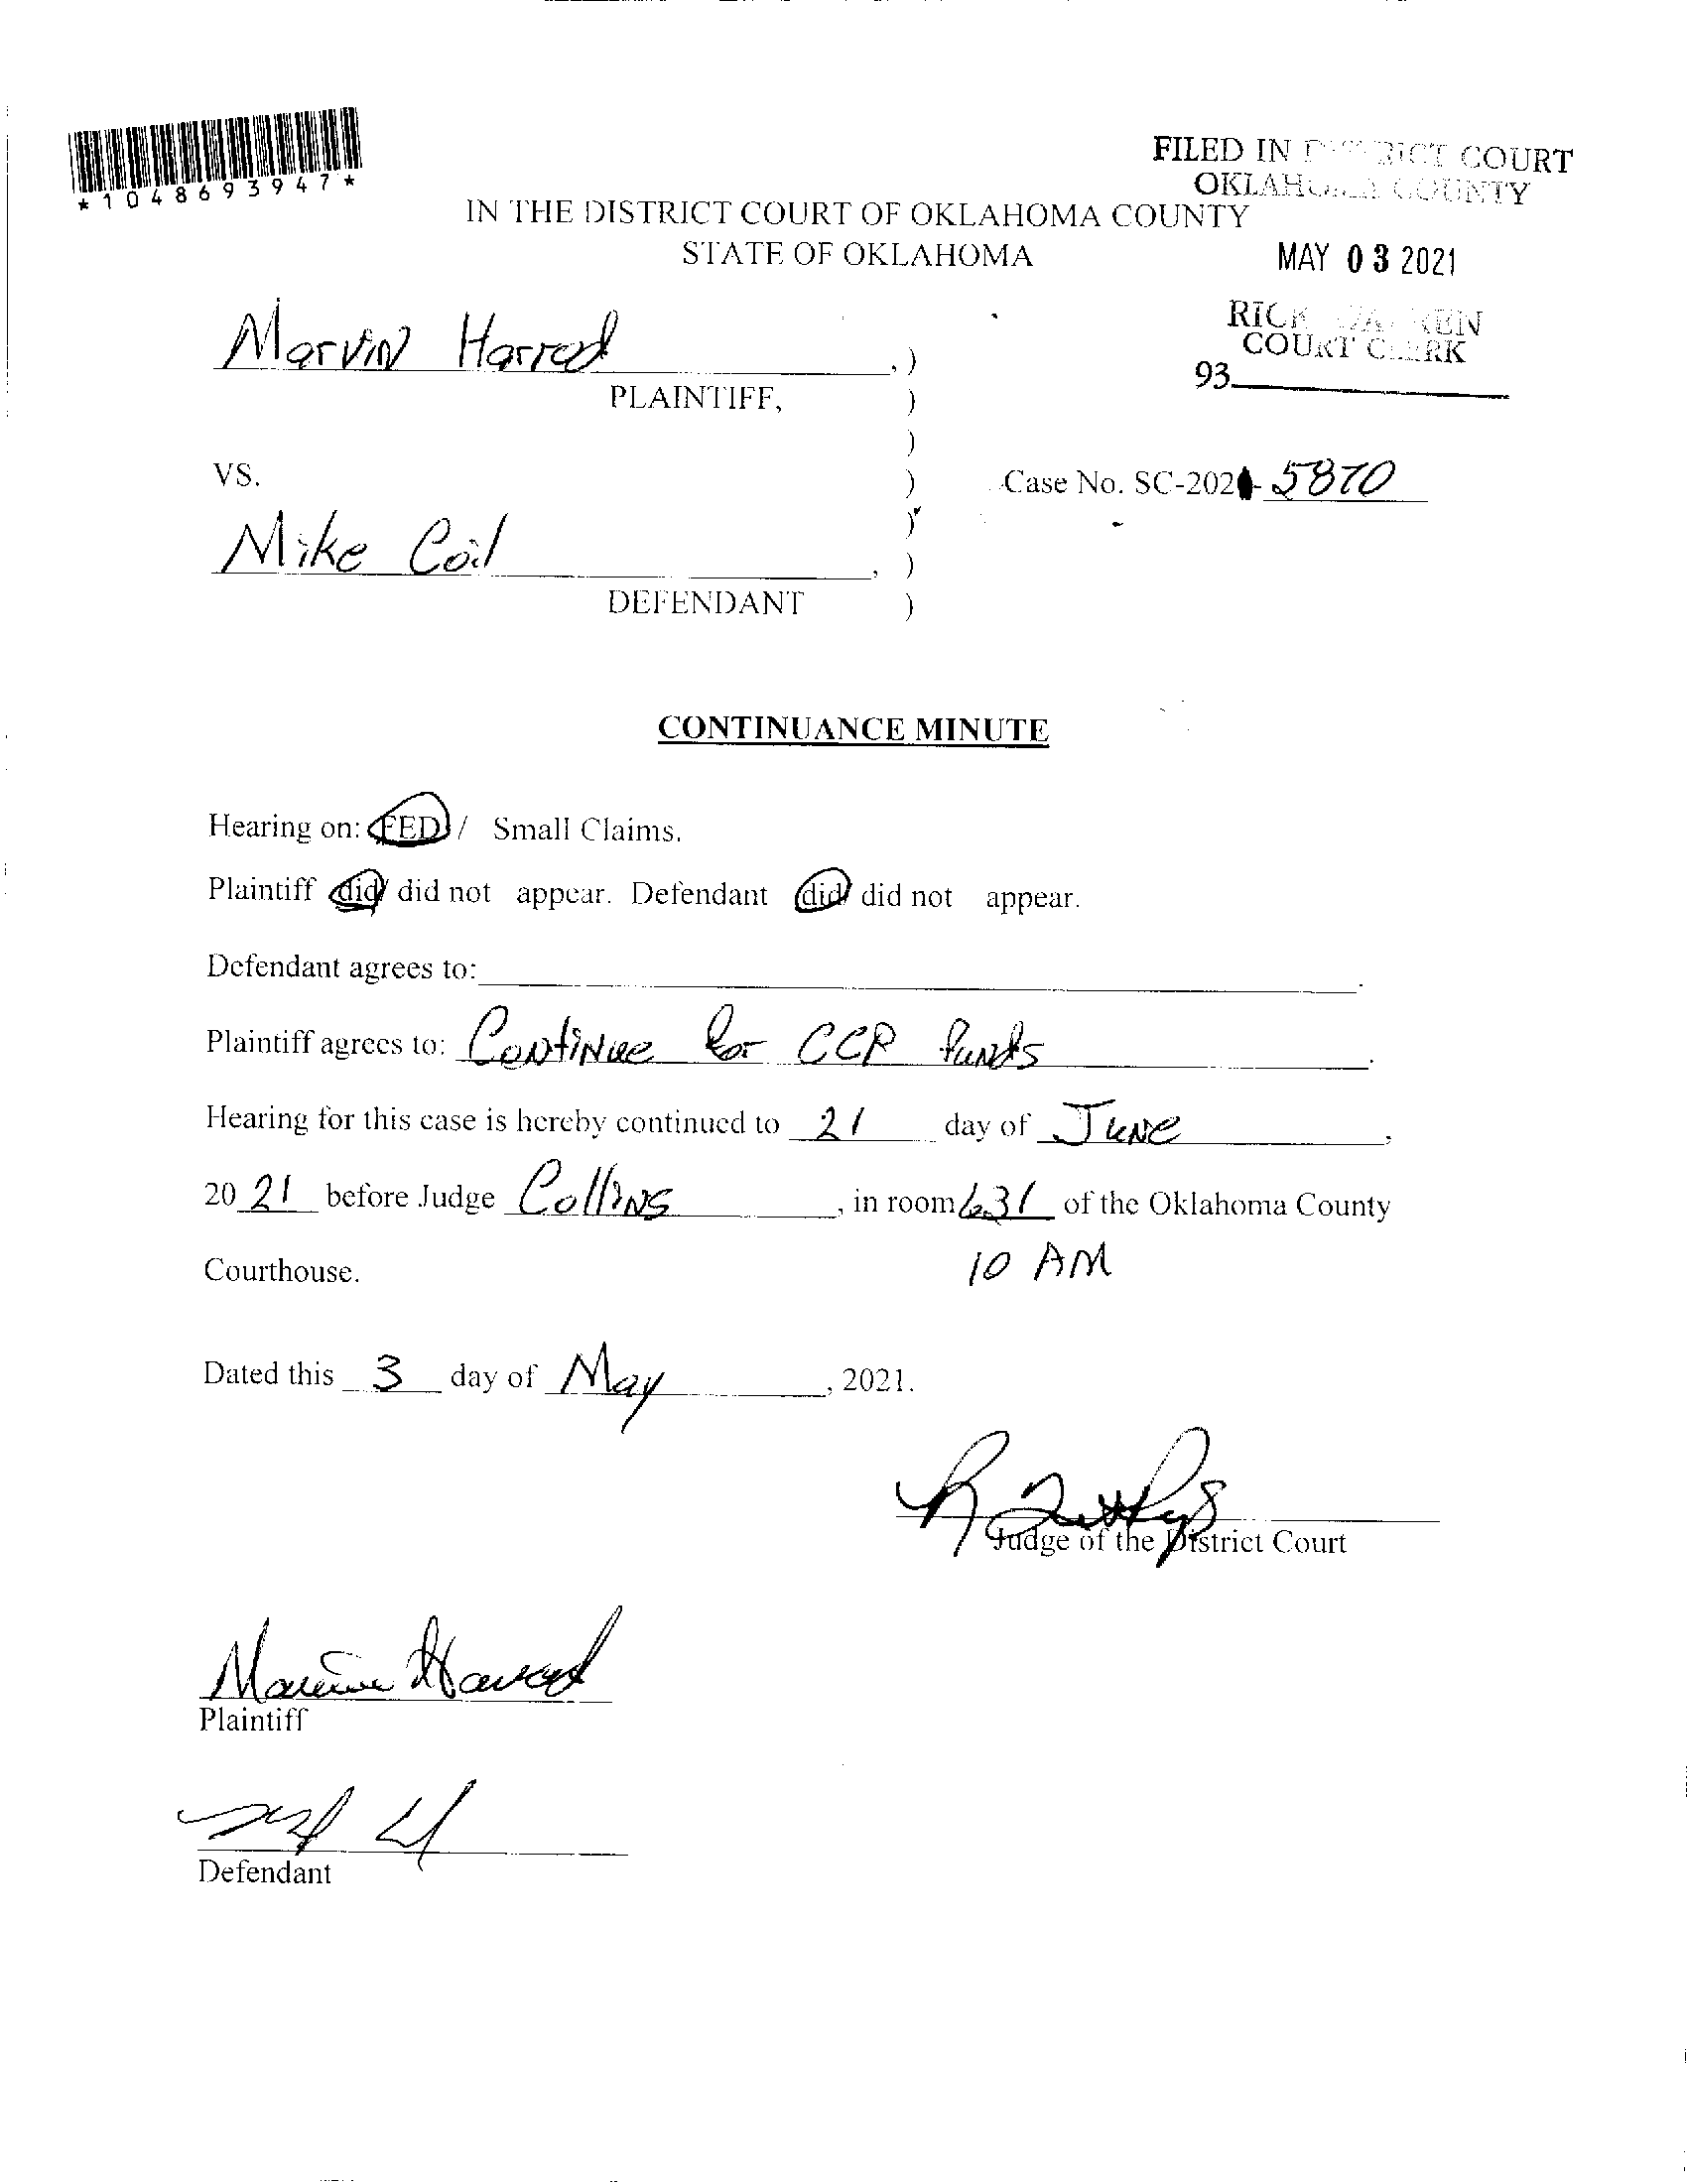 *1048693947*
FILED IN DISTRICT COURT
OKLAHOMA COUNTY
IN THE DISTRICT COURT OF OKLAHOMA COUNTY
STATE OF OKLAHOMA
MAY 03 2021
RICK WARREN
COURT CLERK
93
Marvin Harrod , )
PLAINTIFF, )
)
VS. )
Case No. SC-202 - 5870
)
Mike Coil , )
DEFENDANT )
CONTINUANCE MINUTE
Hearing on: FED / Small Claims.
Plaintiff did/ did not appear. Defendant did/ did not appear.
Defendant agrees to: .
Plaintiff agrees to: Continue for CCP funds .
Hearing for this case is hereby continued to 21 day of June ,
20 21 before Judge Collins , in room 631 of the Oklahoma County
Courthouse. 10 AM
Dated this 3 day of May , 2021.
Judge of the District Court
Marvin Harrod
Plaintiff
Defendant